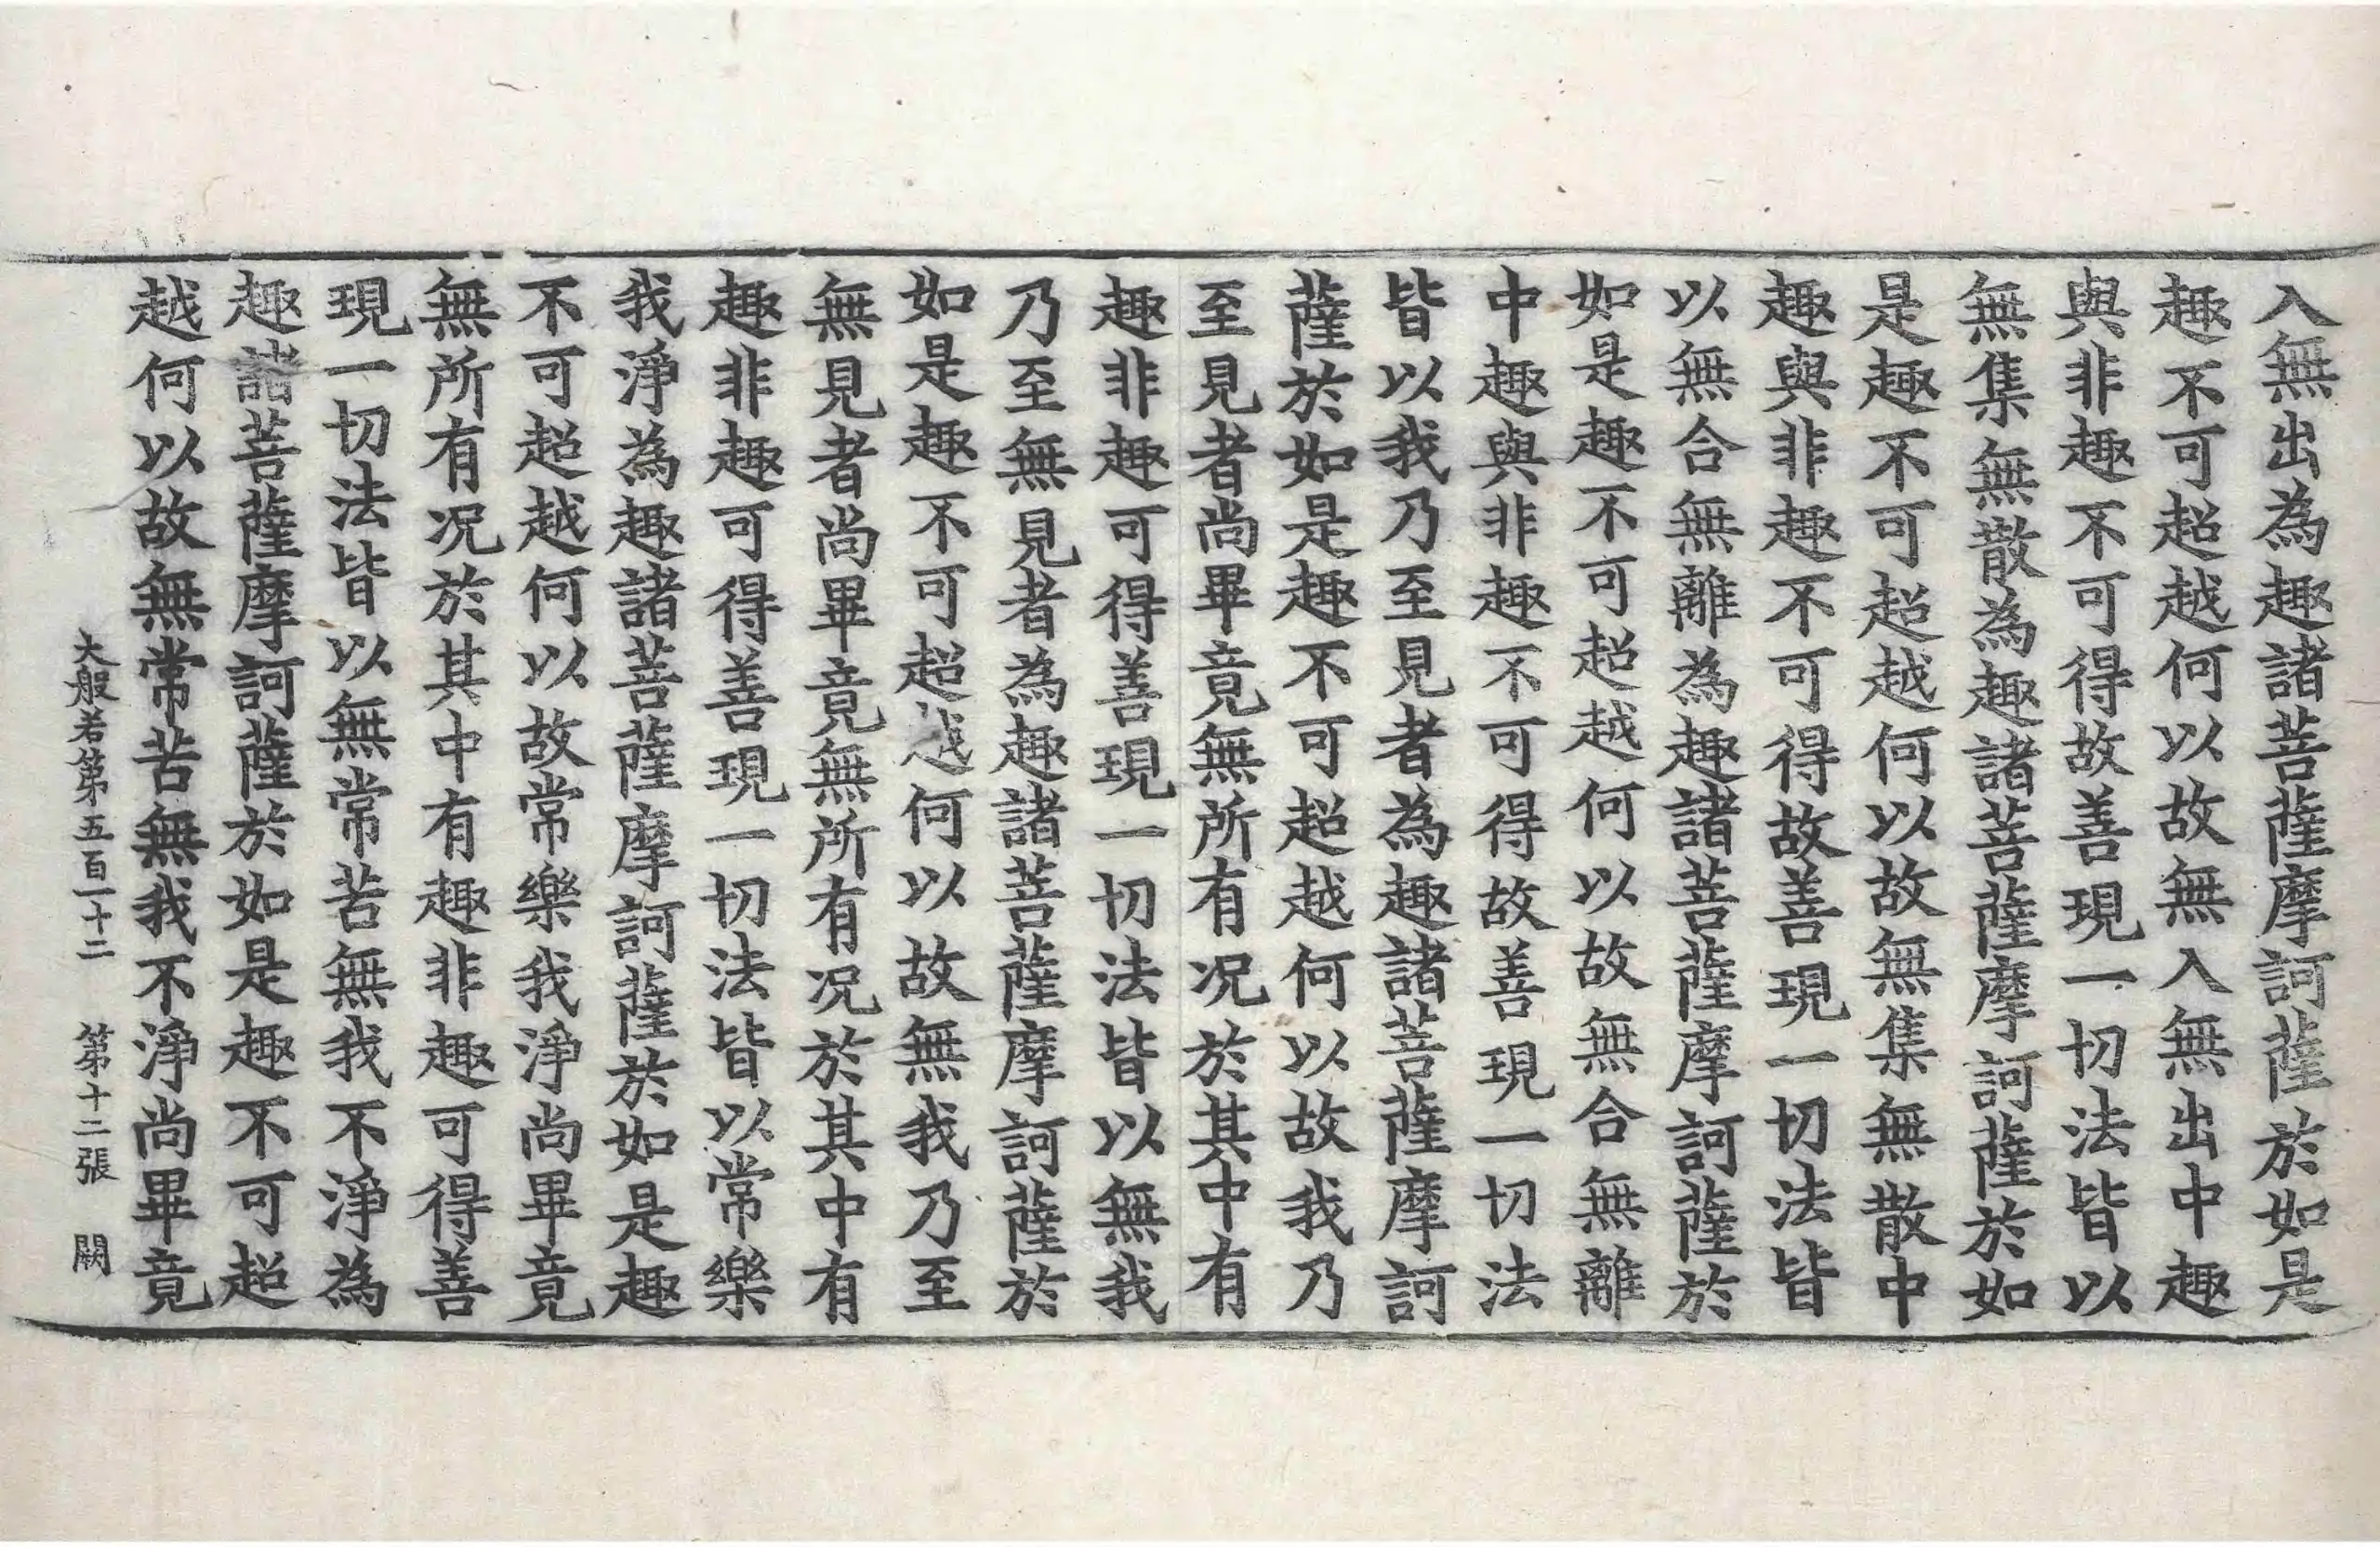 入無出為趣諸菩薩摩訶薩於如是
趣不可超越何以故無入無出中趣
與非趣不可得故善現一切法皆以
無集無散為趣諸菩薩摩訶薩於如
是趣不可超越何以故無集無散中
趣與非趣不可得故善現一切法皆
以無合無離為趣諸菩薩摩訶薩於
如是趣不可超越何以故無合無離
中趣與非趣不可得故善現一切法
皆以我乃至見者為趣諸菩薩摩訶
薩於如是趣不可超越何以故我乃
至見者尚畢竟無所有況於其中有
趣非趣可得善現一切法皆以無我
乃至無見者為趣諸菩薩摩訶薩於
如是趣不可超越何以故無我乃至
無見者尚畢竟無所有況於其中有
趣非趣可得善現一切法皆以常樂
我淨為趣諸菩薩摩訶薩於如是趣
不可超越何以故常樂我淨尚畢竟
無所有況於其中有趣非趣可得善
現一切法皆以無常苦無我不淨為
趣諸菩薩摩訶薩於如是趣不可超
越何以故無常苦無我不淨尚畢竟
大般若第五百一十二 第十二張 闕